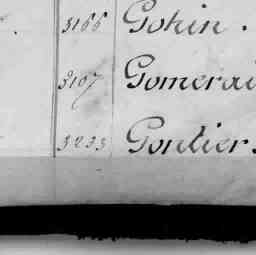 3166 Gohin.
3107 Gomerai
3233 Gontier.